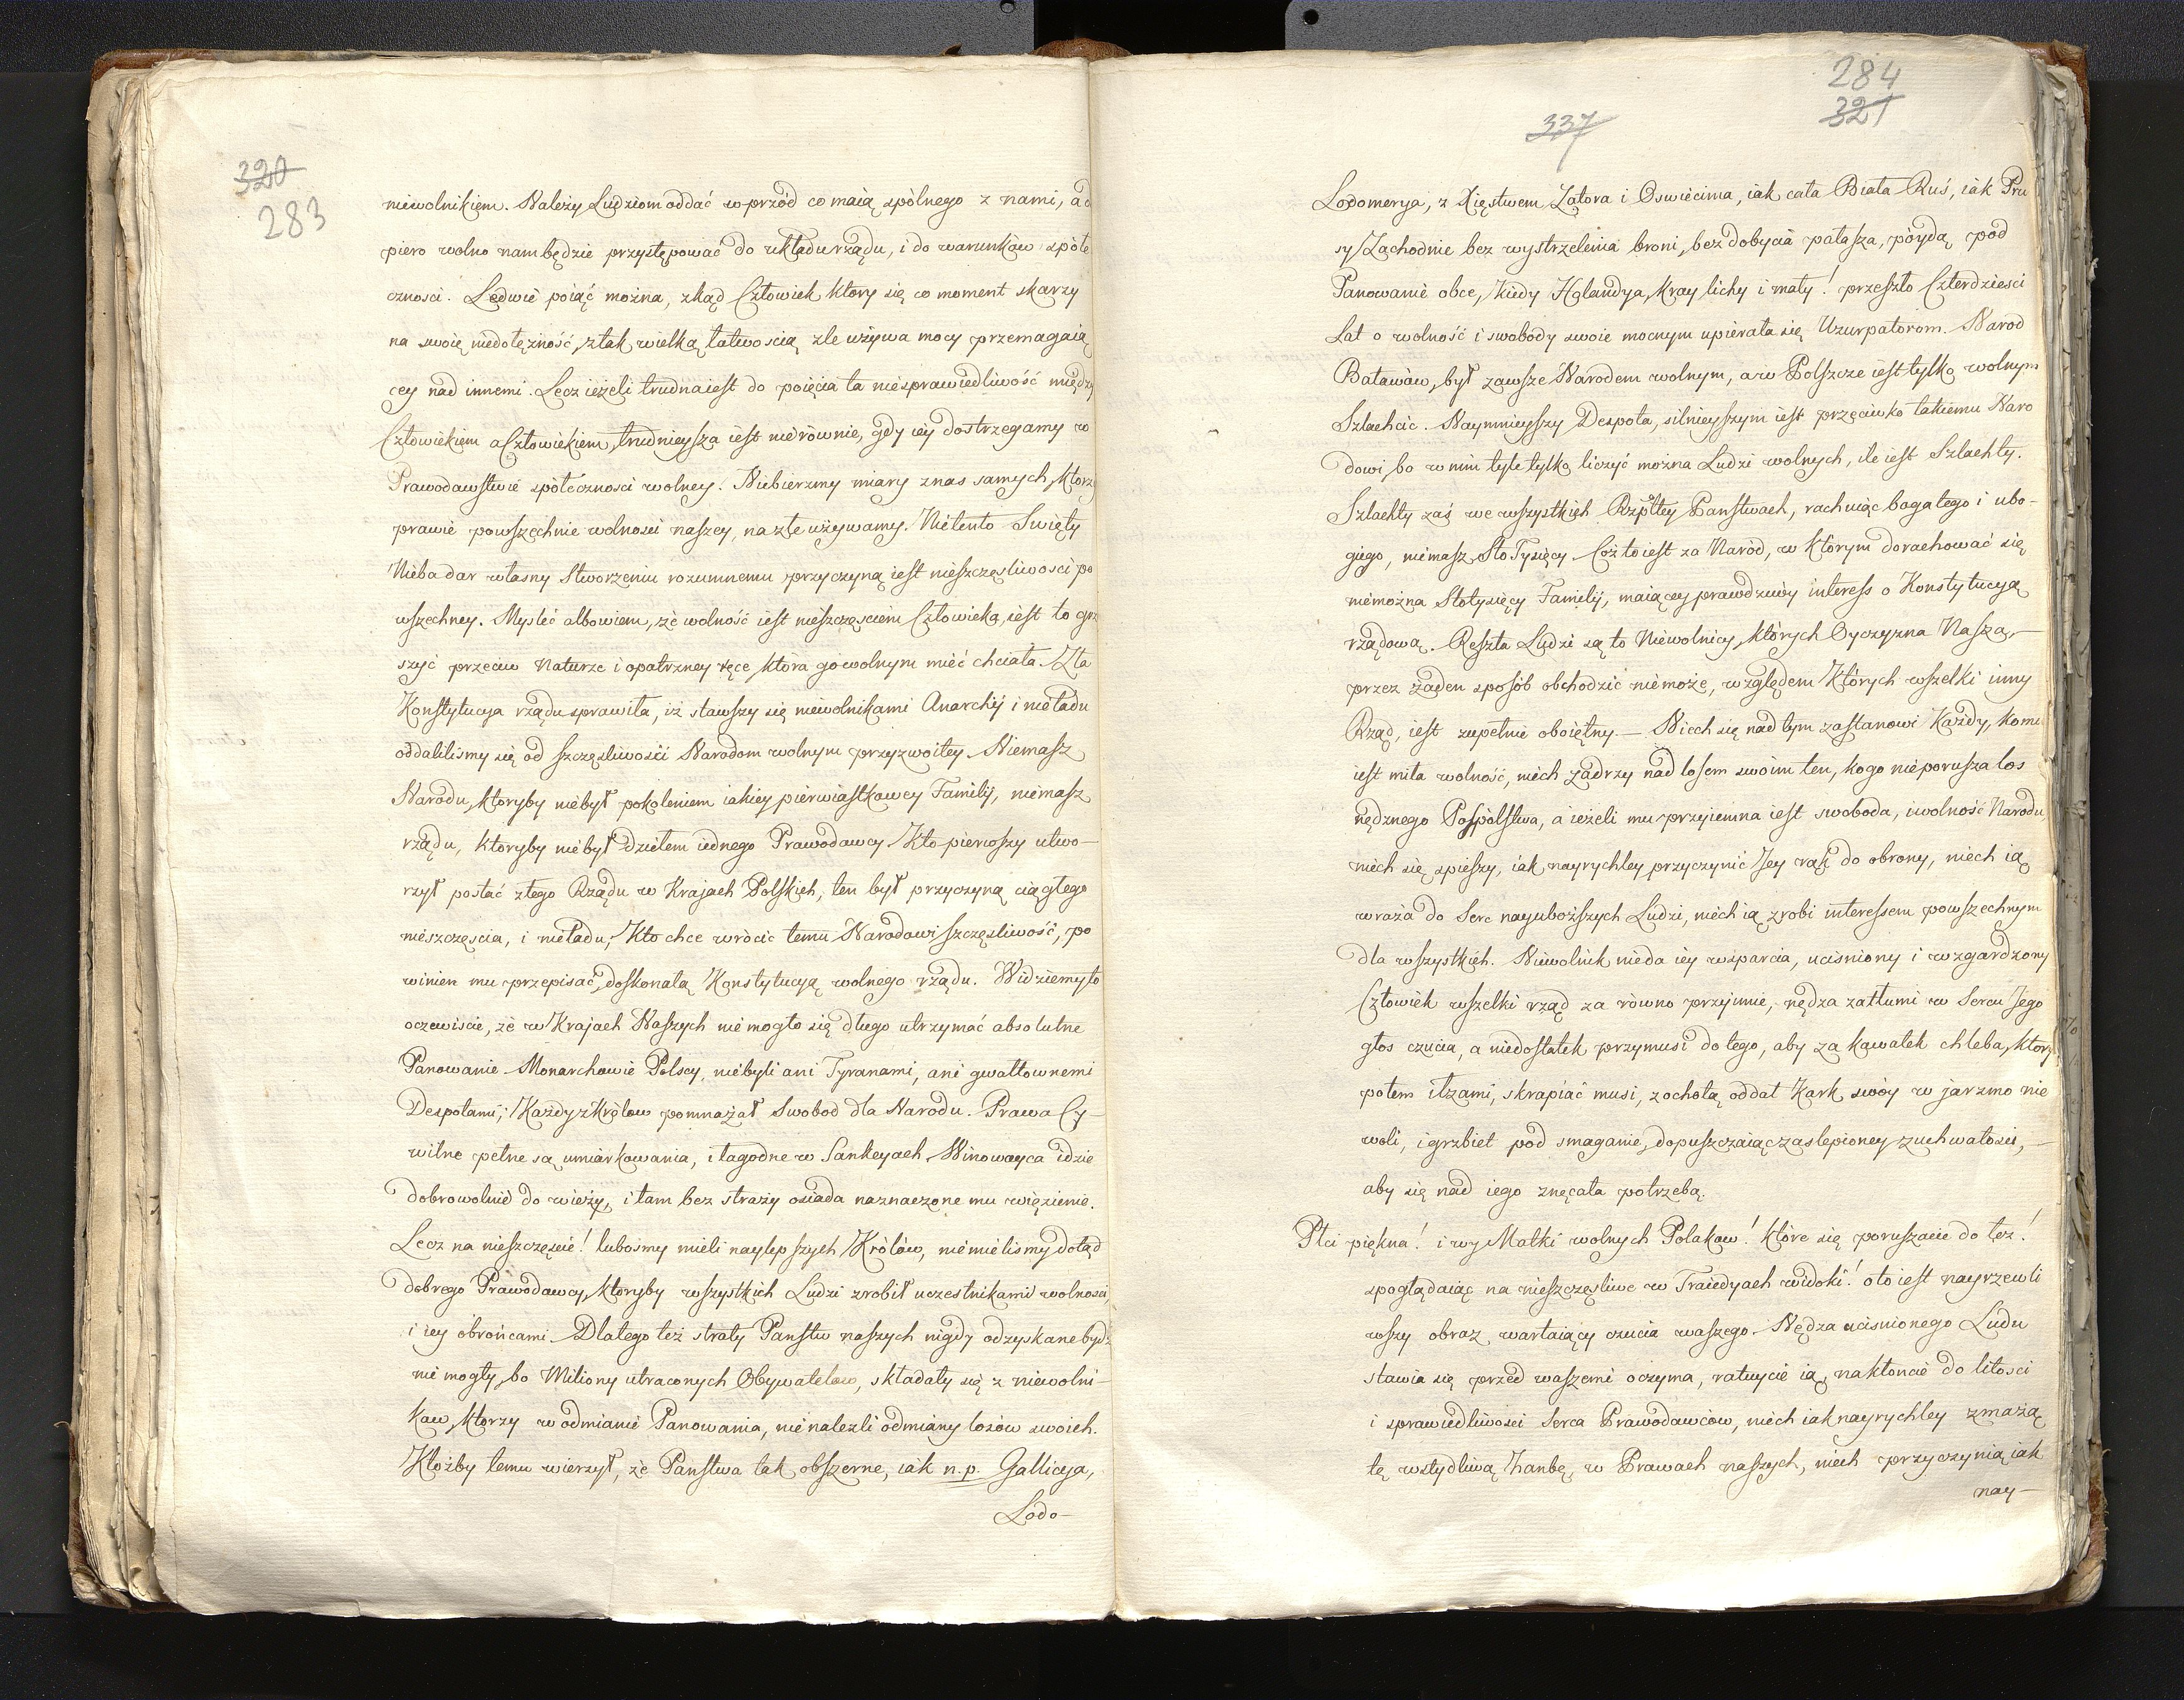 320
283
niewolnikiem. Należy Ludziom oddać w przód co maią spólnego z nami, a d
piero wolno nam będzie przystępować do układu rządu, i do warunków społe
cznosci. Ledwie poiąć można, zkąd Człowiek ktory się co moment skarzy
na swoię niedołężność, z tak wielką łatwoscią zle używa mocy przemagaią
cey nad innemi. Lecz ieżeli trudna iest do poięcia ta niesprawiedliwość między
Człowiekiem a Człowiekiem, trudnieysza iest nierównie, gdy iey dostrzegamy w
Prawodawstwie społecznosci wolney. Niebierzmy miary z nas samych, ktorzy
prawie powszechnie wolnosci naszey, na złe używamy. Nie tento Swięty
Nieba dar własny Stworzeniu rozumnemu przyczyną iest nieszczęsliwosci po
wszechney. Mysleć albowiem, że wolność iest nieszczęsciem Człowieka, iest to grze
szyć przeciw Naturze i opatrzney ręce, która go wolnym mieć chciała. Zła
Konstytucya rządu sprawiła, iż stawszy się niewolnikami Anarchij i nieładu
oddalilismy się od szczęsliwości Narodom wolnym przyzwoitey. Niemasz
Narodu, ktoryby niebył pokoleniem iakiey pierwiastkowey Familij, niemasz
rządu, ktoryby niebył dziełem iednego Prawodawcy. Kto pierwszy utwo-
rzył postać złego Rządu w Krajach Polskich, ten był przyczyną ciągłego
nieszczęscia, i nieładu; Kto chce wrócic temu Narodowi szczęsliwość, po
winien mu przepisać doskonałą Konstytucyą wolnego rządu. Widziemy to
oczewiscie, że w Krajach Naszych nie mogło się długo utrzymać absolutne
Panowanie. Monarchowie Polscy, niebyli ani Tyranami, ani gwałtownemi
Despotami; Każdy z Królow pomnażał Swobod dla Narodu. Prawa Cy-
wilne pełne są umiarkowania, i łagodne w Sankcyach. Winowayca idzie
dobrowolnie do wieży, i tam bez straży osiada naznaczone mu więzienie.
Lecz na nieszczęscie! lubosmy mieli naylepszych Królów, nie mielismy dotąd
dobrego Prawodawcy, ktoryby wszystkich Ludzi zrobił uczestnikami wolnosci,
i iey obrońcami. Dlatego też straty Panstw naszych nigdy odzyskane bydź
nie mogły, bo Miliony utraconych Obywatelow, składały się z niewolni-
kow, ktorzy w odmianie Panowania, nie nalezli odmiany losów swoich.
Któżby temu wierzył, że Panstwa tak obszerne, iák n.p. Gallicya,
Lodo-
284
321
337
Lodomerya, z Xięstwem Zatora i Oswiecima, iak cała Biała Ruś, iák Pru
sy Zachodnie bez wystrzelenia broni, bez dobycia pałasza, póydą pod
Panowanie obce, kiedy Holandya, kray lichy i mały! przeszło Czterdziesci
Lat o wolność i swobody swoie mocnym upierała się Uzurpatorom. Narod
Batawów, był zawsze Narodem wolnym, a w Polszcze iest tylko wolnym
Szlachcic. Naymnieyszy Despota, silnieyszym iest przeciwko takiemu Naro
dowi, bo w nim tyle tylko liczyć można Ludzi wolnych, ile iest Szlachty.
Szlachty zaś we wszystkich Rzpltey Panstwach, rachuiąc bagatego i ubo-
giego, niemasz Sto Tysięcy. Cóż to iest za Naród, w ktorym dorachować się
niemożna Stotysięcy Familij, maiącey prawdziwy interess o Konstytucyą
rządową. Reszta Ludzi są to Niewolnicy, których Oyczyzna Nasza,-
przez żaden sposób obchodzić niemoże, względem Których wszelki inny
Rząd, iest zupełnie oboiętny.- Niech się nad tym zastanowi Każdy, komu
iest miła wolność, niech zadrzy nad losem swoim ten, kogo nieporusza los
nędznego Pospólstwa, a ieżeli mu przyiemna iest swoboda, i wolność Narodu
niech się spieszy, iak nayrychley przyczynić Jey rąk do obrony, niech ią
wraża do Serc nayuboższych Ludzi, niech ią zrobi interessem powszechnym
dla wszystkich. Niewolnik nieda iey wsparcia, ucisniony i wzgardzony
Człowiek wszelki rząd za równo przyjmie, nędza zatłumi w Sercu Jego
głos czucia, a niedostatek przymusi do tego, aby za kawałek chleba, ktory
potem i łzami, skrapiać musi, z ochotą oddał Kark swóy w jarzmo nie
woli, i grzbiet pod smaganie, dopuszczaiąc zaslepioney zuchwałosci, -
aby się nad iego znęcała potrzebą.
Płci piękna! i wy Matki wolnych Polakow! które się poruszacie do łez!
spoglądaiąc na nieszczęsliwe w Traiedyach widoki! oto iest nayrzewli
wszy obraz wartaiący czucia waszego. Nędza ucisnionego Ludu
stawia się przed waszemi oczyma, ratuycie ią, nakłońcie do litosci
i sprawiedliwosci Serca Prawodawców, niech iak nayrychley zmażą
tę wstydliwą hanbę, w Prawach naszych, niech przyczynią iak
nay-